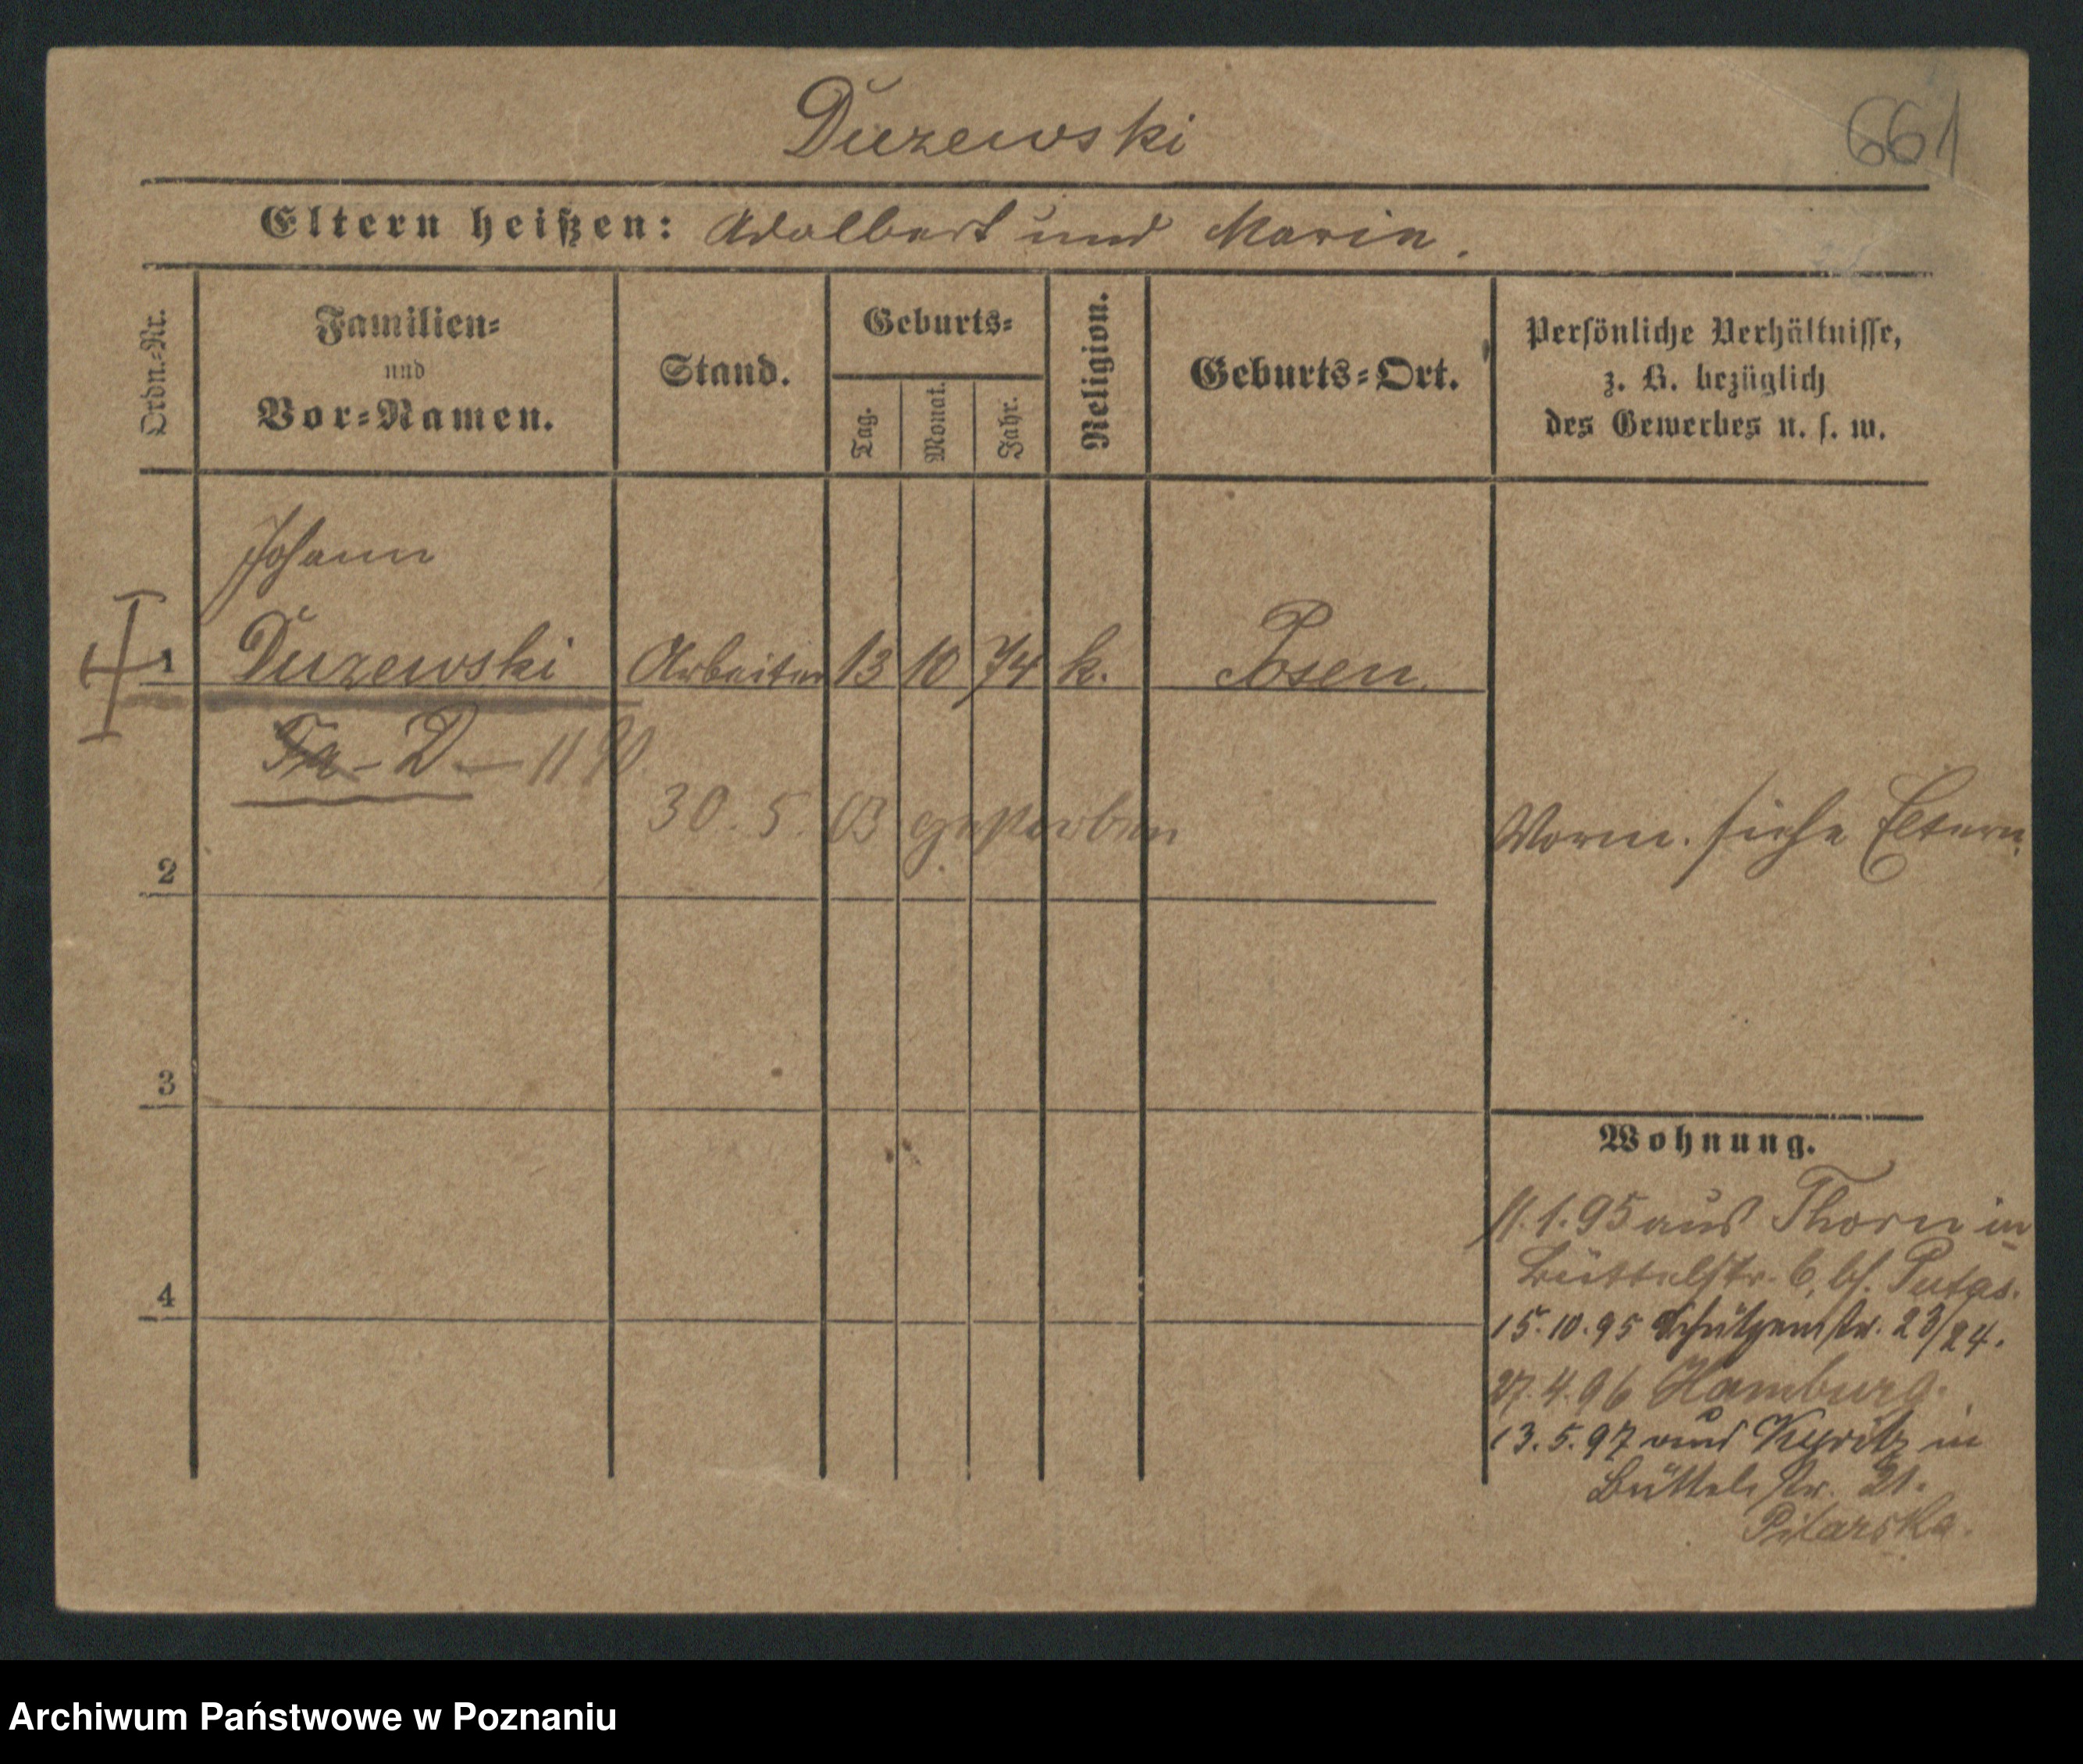 Duzewski
661
Eltern heißen: Adalbert und Maria.
Ordn.-Nr.
Familien-
und
Vor-Namen.
Stand.
Geburts-
Tag.
Monat.
Jahr.
Religion.
Geburts-Ort.
Persönliche Verhältnisse,
z. B. bezüglich
des Gewerbes u. s. w.
Johann
1 Duzewski Arbeiter 13 10 74 k. Posen.
D — 11
30. 5. 03 gestorben
Vorm. siehe Eltern.
2
3
4
Wohnung.
11.1.95 aus Thorn in
Büttelstr. 6, bei
15.10.95 Schützenstr. 23/24.
27.4.96 Hamburg.
13.5.97 aus Kyritz in
Büttelstr. 21.
Pilarska.
Archiwum Państwowe w Poznaniu